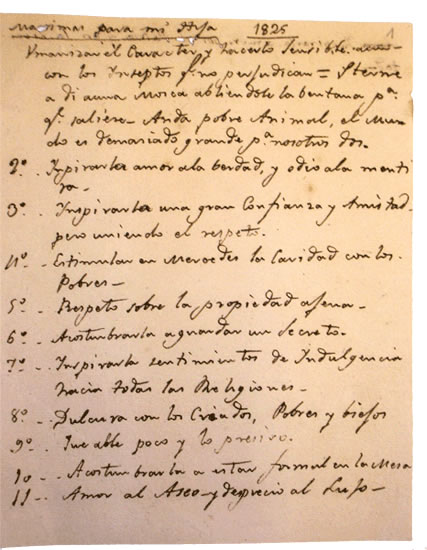 Maximas para mi Hija 1825
1
Umanizar el Caracter y hacerlo sensible aun
con los Insectos q.e no perjudican = Sterne
a di auna Mosca abriendole la bentana p.a
q.e saliese - Anda pobre Animal, el Mun-
do es demaciado grande p.a nosotros dos.
2º.. Inspirarla amor ala berdad, y odio ala menti
ra-
3º.. Inspirarla una gran Confianza y Amistad
pero uniendo el respeto.
4º.. Estimular en Mercedes la Caridad con los
Pobres-
5º.. Respeto sobre la propiedad ajena-
6º.. Acostumbrarla a guardar un Secreto.
7º.. Inspirarla sentimientos de Indulgencia
hacia todas las Religiones-
8º.. Dulcura con los Criados, Pobres y biejos
9º.. Que able poco y lo preciso.
10-. Acostumbrarla a estar formal en la Mesa
11-. Amor al Aseo y desprecio al Lujo-